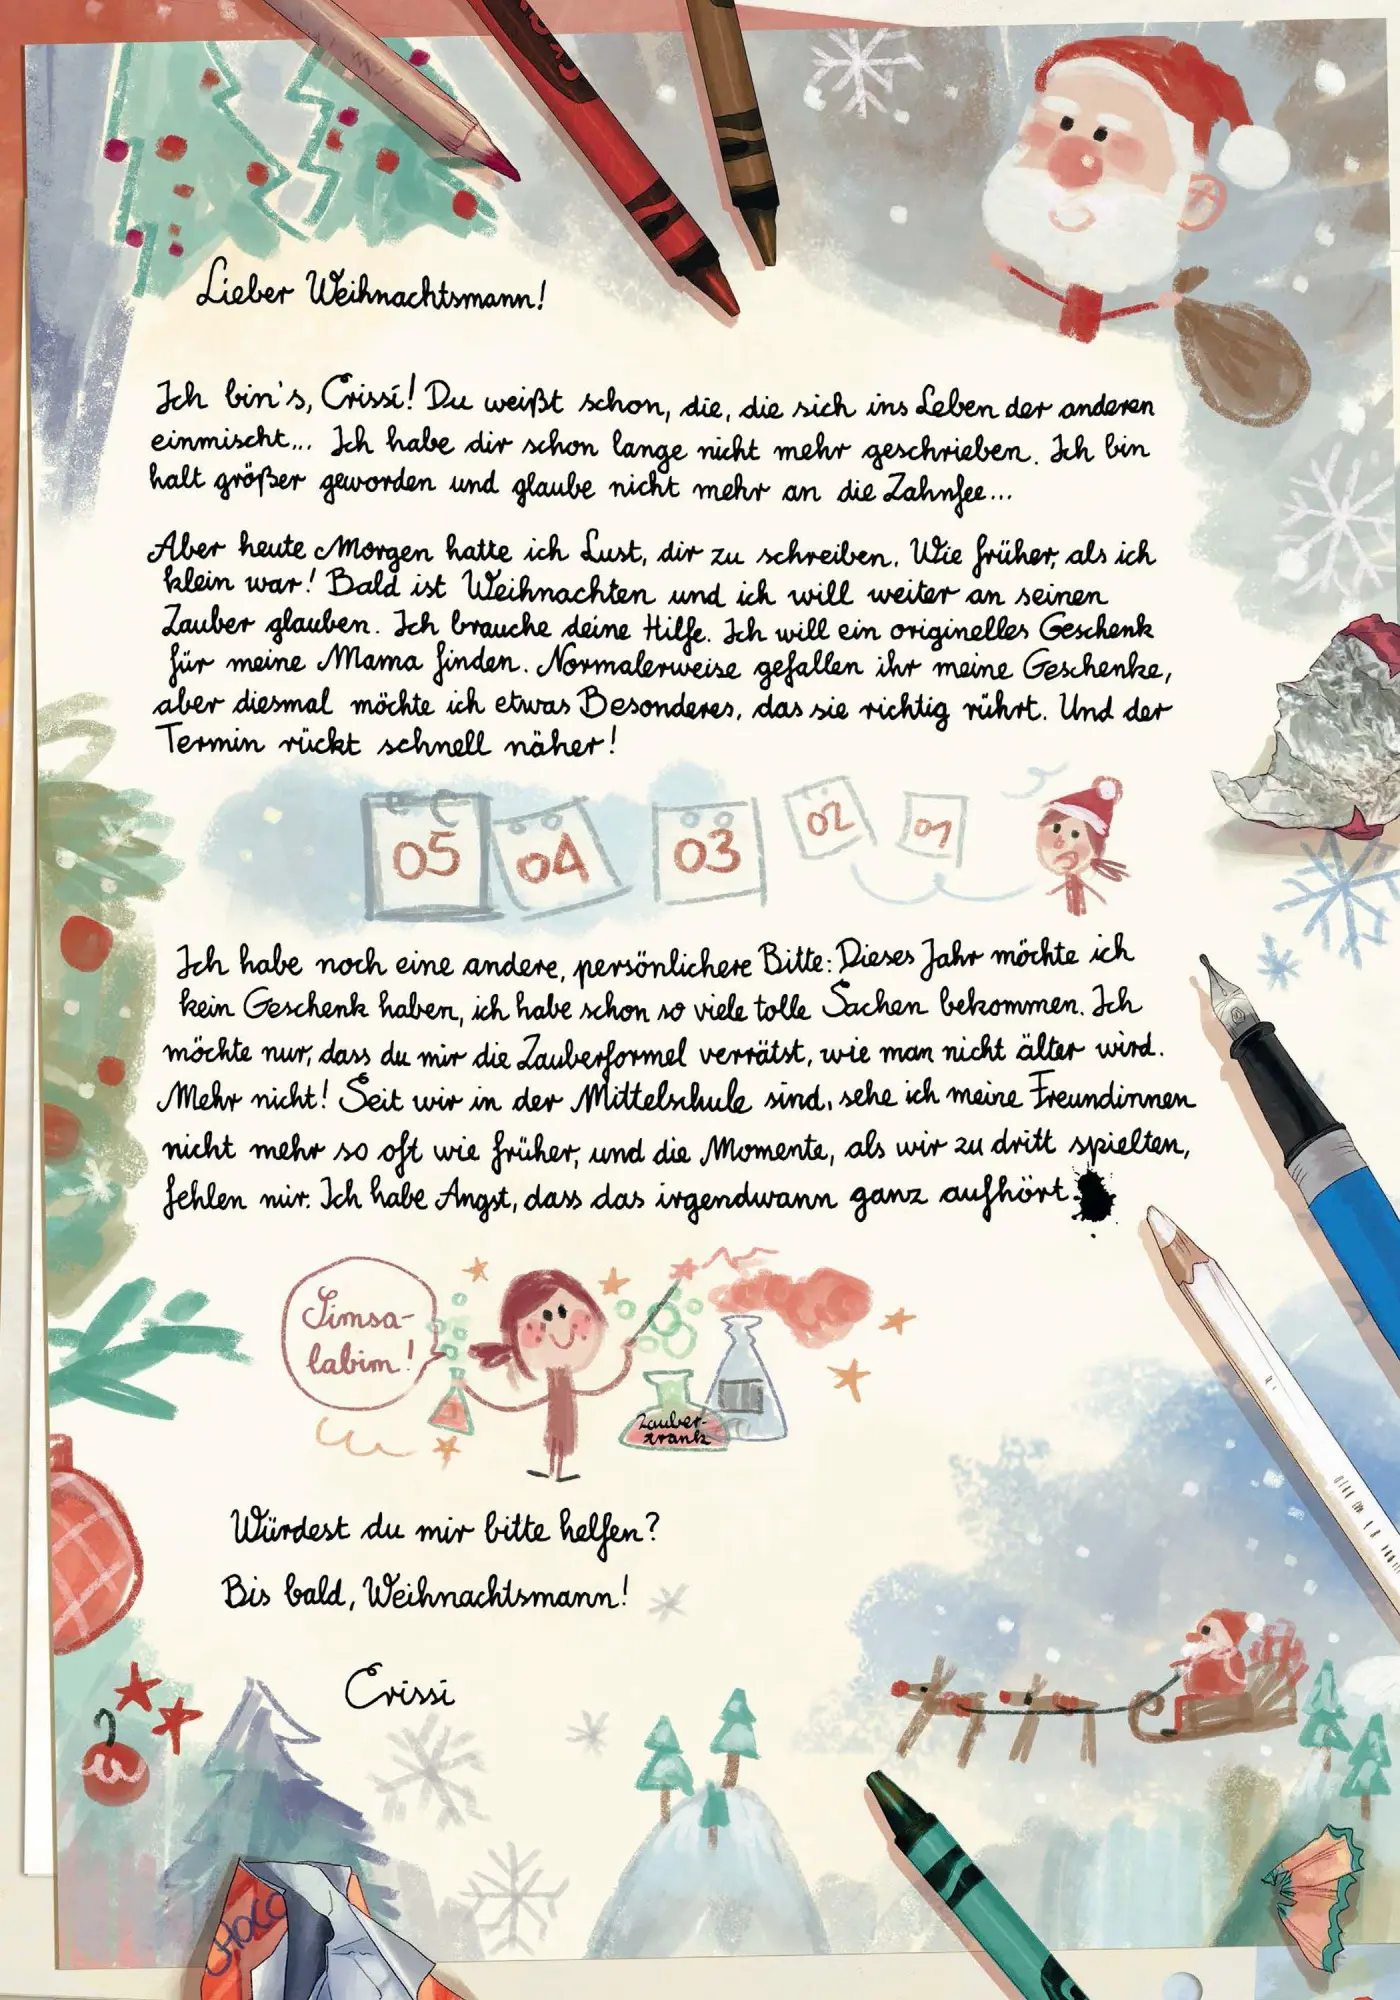 Lieber Weihnachtsmann!
Ich bin's, Crissi! Du weißt schon, die, die sich ins Leben der anderen
einmischt... Ich habe dir schon lange nicht mehr geschrieben. Ich bin
halt größer geworden und glaube nicht mehr an die Zahnfee...
Aber heute Morgen hatte ich Lust, dir zu schreiben. Wie früher, als ich
klein war! Bald ist Weihnachten und ich will weiter an seinen
Zauber glauben. Ich brauche deine Hilfe. Ich will ein originelles Geschenk
für meine Mama finden. Normalerweise gefallen ihr meine Geschenke,
aber diesmal möchte ich etwas Besonderes, das sie richtig rührt. Und der
Termin rückt schnell näher!
05 04 03 02 01
Ich habe noch eine andere, persönlichere Bitte: Dieses Jahr möchte ich
kein Geschenk haben, ich habe schon so viele tolle Sachen bekommen. Ich
möchte nur, dass du mir die Zauberformel verrätst, wie man nicht älter wird.
Mehr nicht! Seit wir in der Mittelschule sind, sehe ich meine Freundinnen
nicht mehr so oft wie früher, und die Momente, als wir zu dritt spielten,
fehlen mir. Ich habe Angst, dass das irgendwann ganz aufhört.
Simsa-
labim!
Zauber-
trank
Würdest du mir bitte helfen?
Bis bald, Weihnachtsmann!
Crissi
CHOCO